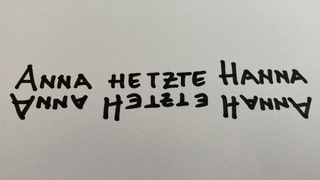 ANNA HETZTE HANNA
ANNA HETZTE HANNA